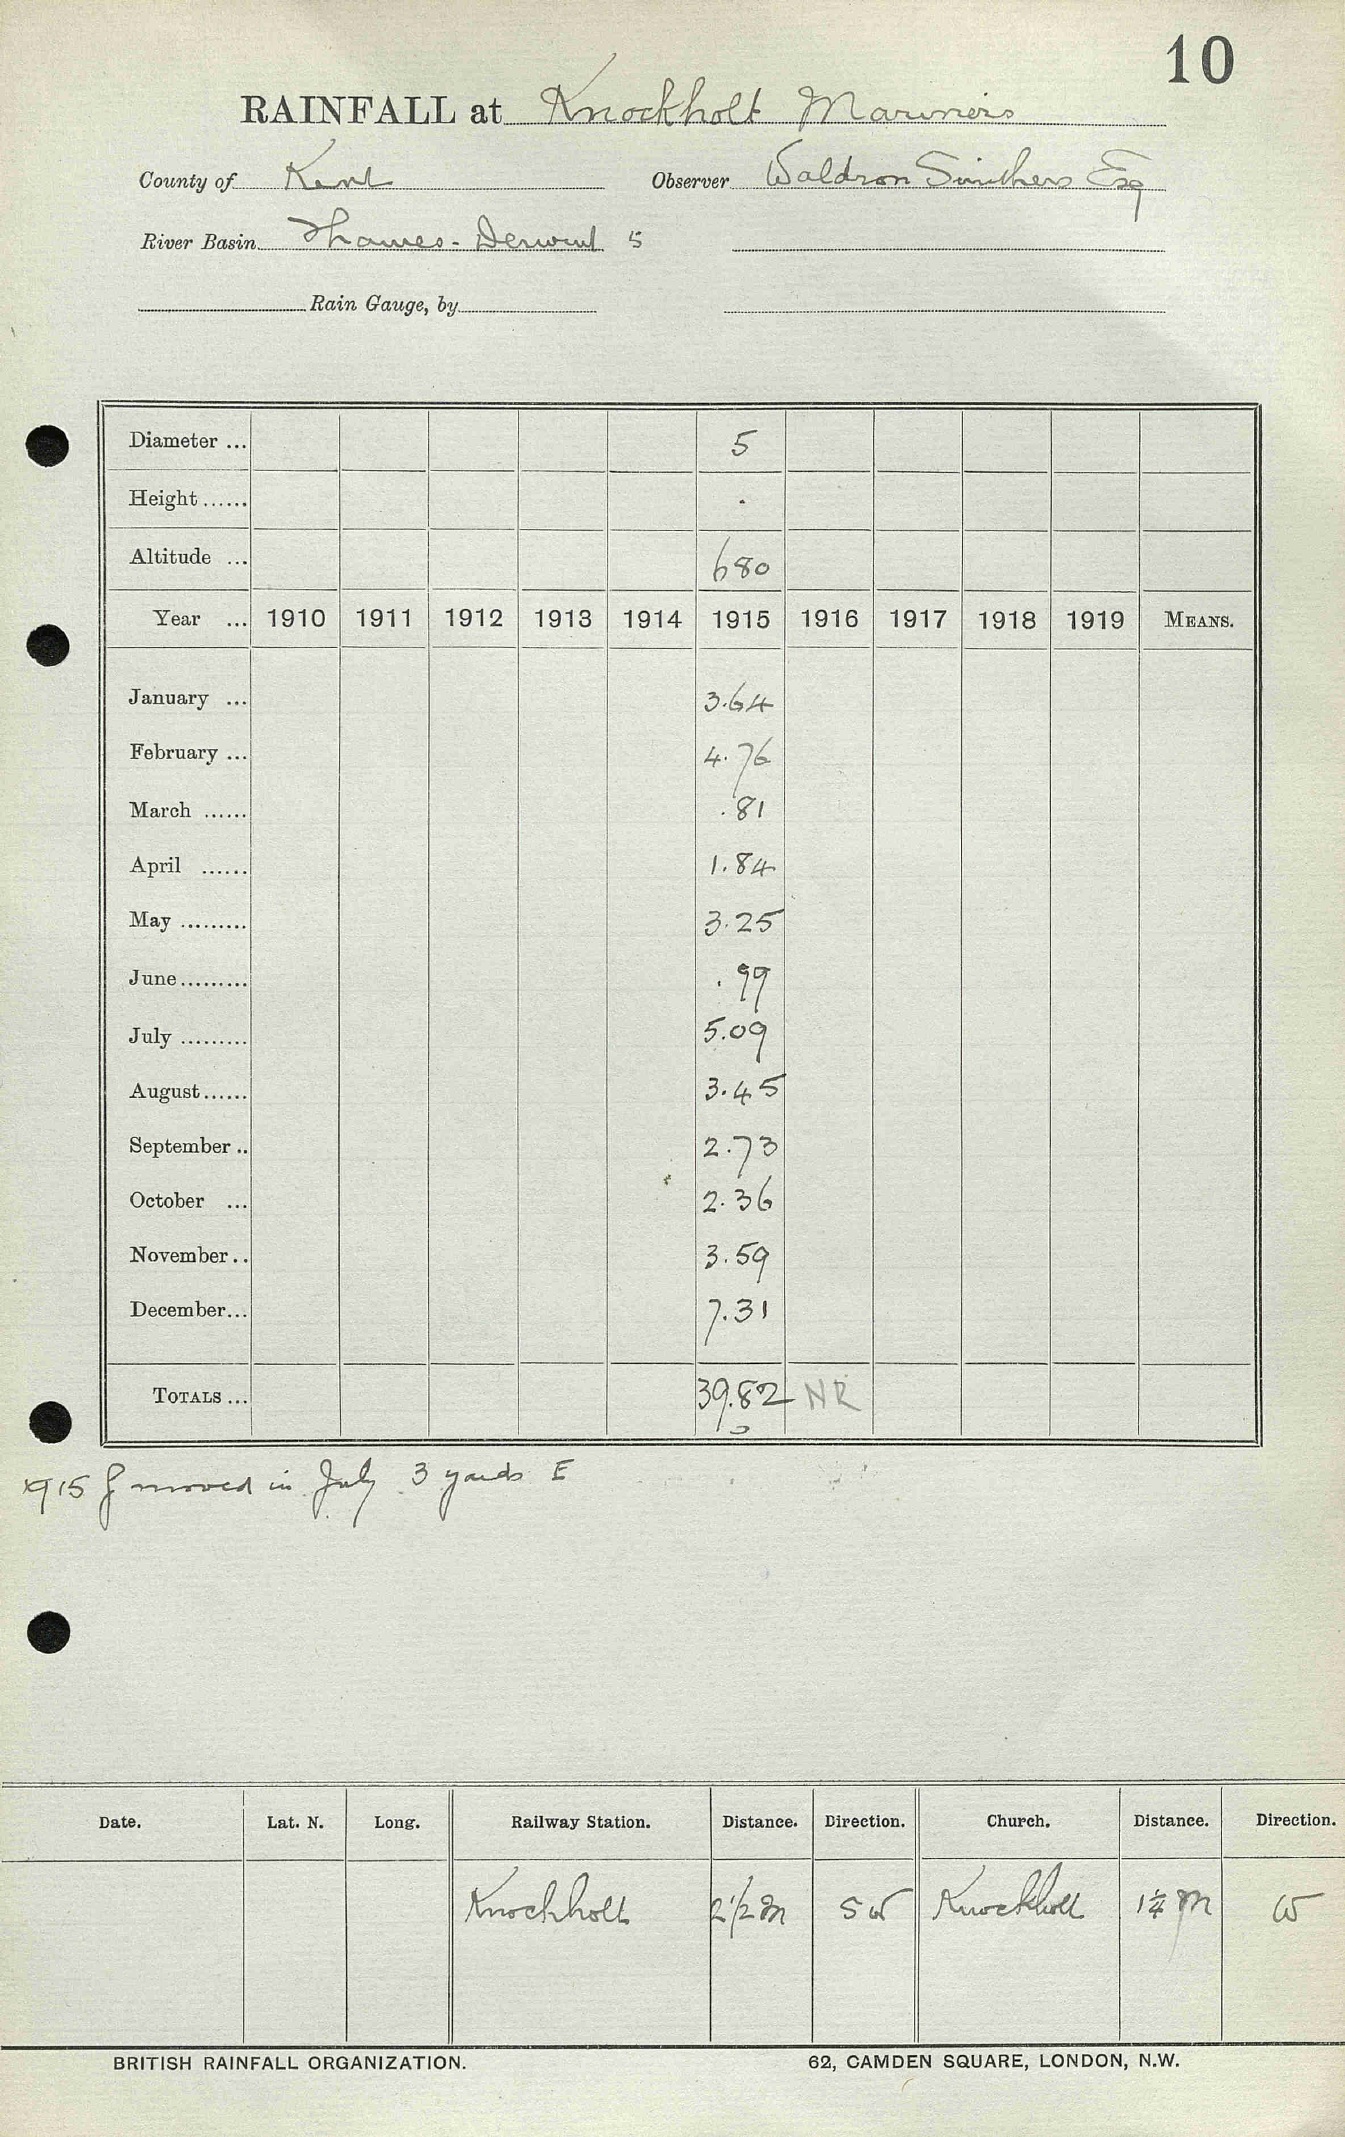 10
RAINFALL at Knockholt Mariners
County of Kent Observer Waldron Smithers Esq
River Basin Thames - Derwent 5
Rain Gauge, by
Diameter ... 5
Height ...... .
Altitude ... 680
Year ... 1910 1911 1912 1913 1914 1915 1916 1917 1918 1919 MEANS.
January ... 3.64
February ... 4.76
March ...... .81
April ...... 1.84
May ......... 3.25
June ......... .99
July ......... 5.09
August ...... 3.45
September .. 2.73
October ... 2.36
November .. 3.59
December ... 7.31
TOTALS ... 39.82 NR
1915 g moved in July 3 yards E
Date. Lat. N. Long. Railway Station. Distance. Direction. Church. Distance. Direction.
Knockholt 2 1/2 m SW Knockholt 1 1/4 m W
BRITISH RAINFALL ORGANIZATION. 62, CAMDEN SQUARE, LONDON, N.W.